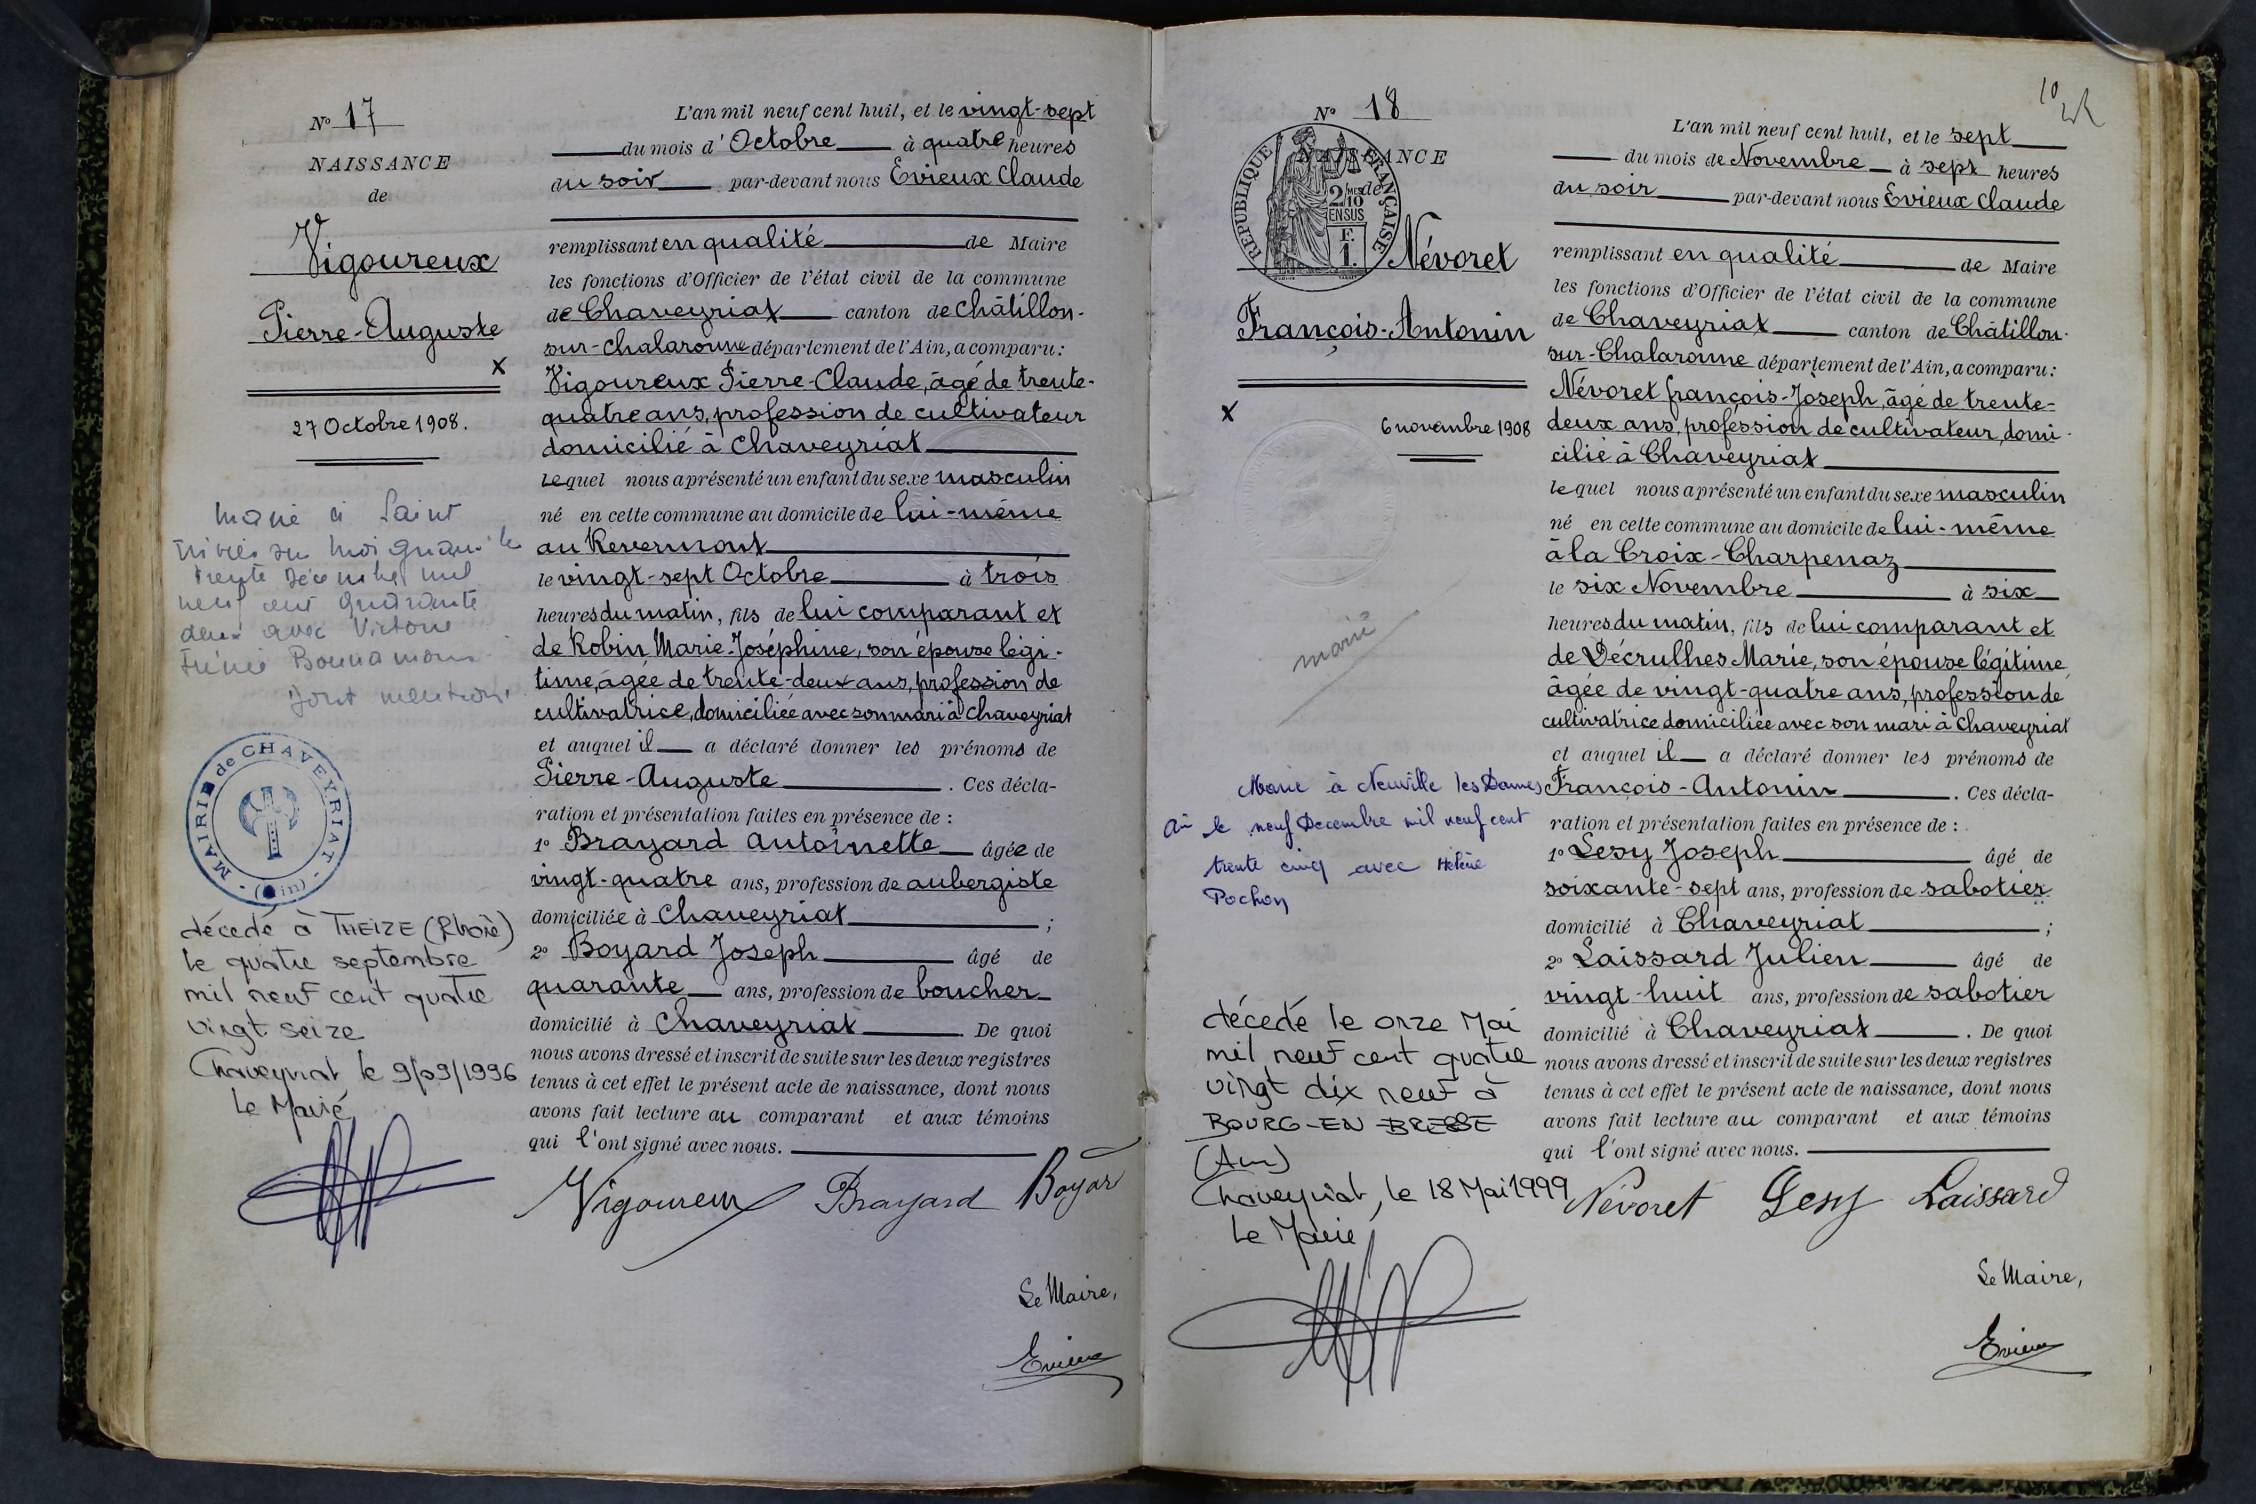 N° 17
NAISSANCE
de
Vigoureux
Pierre-Auguste
X
27 Octobre 1908.
Marié à Saint
Trivier sur Moignans le
trente Décembre mil
neuf cent quarante
deux avec Victorine
Bonnamour
dont mention
MAIRIE de CHAVEYRIAT
- (Ain) -
décédé à THEIZE (Rhône)
le quatre septembre
mil neuf cent quatre
vingt seize
Chaveyriat le 9/09/1996
Le Maire
L'an mil neuf cent huit, et le vingt-sept
du mois d'Octobre à quatre heures
du soir par-devant nous Evieux Claude
remplissant en qualité de Maire
les fonctions d'Officier de l'état civil de la commune
de Chaveyriat canton de Châtillon-
sur-Chalaronne département de l'Ain, a comparu:
Vigoureux Pierre-Claude, âgé de trente-
quatre ans, profession de cultivateur
domicilié à Chaveyriat
lequel nous a présenté un enfant du sexe masculin
né en cette commune au domicile de lui-même
au Revermont
le vingt-sept Octobre à trois
heures du matin, fils de lui comparant et
de Robin Marie-Joséphine, son épouse légi-
time, âgée de trente-deux ans, profession de
cultivatrice, domiciliée avec son mari à Chaveyriat
et auquel il a déclaré donner les prénoms de
Pierre-Auguste. Ces décla-
ration et présentation faites en présence de :
1° Brayard Antoinette âgée de
vingt-quatre ans, profession de aubergiste
domiciliée à Chaveyriat ;
2° Boyard Joseph âgé de
quarante ans, profession de boucher
domicilié à Chaveyriat. De quoi
nous avons dressé et inscrit de suite sur les deux registres
tenus à cet effet le présent acte de naissance, dont nous
avons fait lecture au comparant et aux témoins
qui l'ont signé avec nous.
Vigoureux Brayard Boyard
Le Maire,
Evieux
10
N° 18
NAISSANCE
de
REPUBLIQUE FRANÇAISE
2/10 MES
EN SUS
F.
1.
Névoret
François-Antonin
X
6 novembre 1908
marié
Marié à Neuville les Dames
Ain le neuf Decembre mil neuf cent
trente cinq avec Hélène
Pochon
décédé le onze Mai
mil neuf cent quatre
vingt dix neuf à
BOURG-EN-BRESSE
(Ain)
Chaveyriat, le 18 Mai 1999
Le Maire
L'an mil neuf cent huit, et le sept
du mois de Novembre à sept heures
du soir par-devant nous Evieux Claude
remplissant en qualité de Maire
les fonctions d'Officier de l'état civil de la commune
de Chaveyriat canton de Châtillon-
sur-Chalaronne département de l'Ain, a comparu:
Névoret françois-Joseph, âgé de trente-
deux ans, profession de cultivateur, domi-
cilié à Chaveyriat
lequel nous a présenté un enfant du sexe masculin
né en cette commune au domicile de lui-même
à la Croix-Charpenaz
le six Novembre à six
heures du matin, fils de lui comparant et
de Décrulhes Marie, son épouse légitime,
âgée de vingt-quatre ans, profession de
cultivatrice domiciliée avec son mari à Chaveyriat
et auquel il a déclaré donner les prénoms de
François-Antonin. Ces décla-
ration et présentation faites en présence de :
1° Lesy Joseph âgé de
soixante-sept ans, profession de sabotier
domicilié à Chaveyriat ;
2° Laissard Julien âgé de
vingt-huit ans, profession de sabotier
domicilié à Chaveyriat. De quoi
nous avons dressé et inscrit de suite sur les deux registres
tenus à cet effet le présent acte de naissance, dont nous
avons fait lecture au comparant et aux témoins
qui l'ont signé avec nous.
Névoret Lesy Laissard
Le Maire,
Evieux